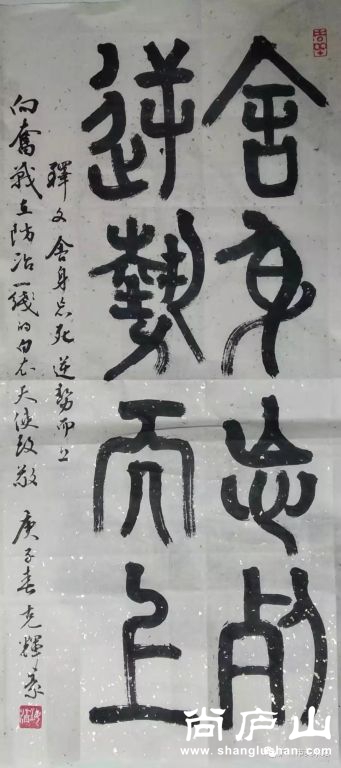 舍身忘死
逆勢而上
釋文 舍身忘死 逆勢而上
向奮戰在防治一线的白衣天使致敬 庚子春 克輝篆
尚庐山
www.shanglushan.com